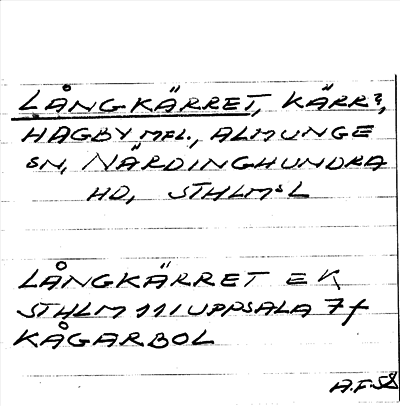 LÅNGKÄRRET, KÄRR?,
HAGBY MFL., ALMUNGE
SN, NÄRDINGHUNDRA
HD, STHLMS L
LÅNGKÄRRET EK
STHLM 111 UPPSALA 7 f
KÅGARBOL
A.F. 58